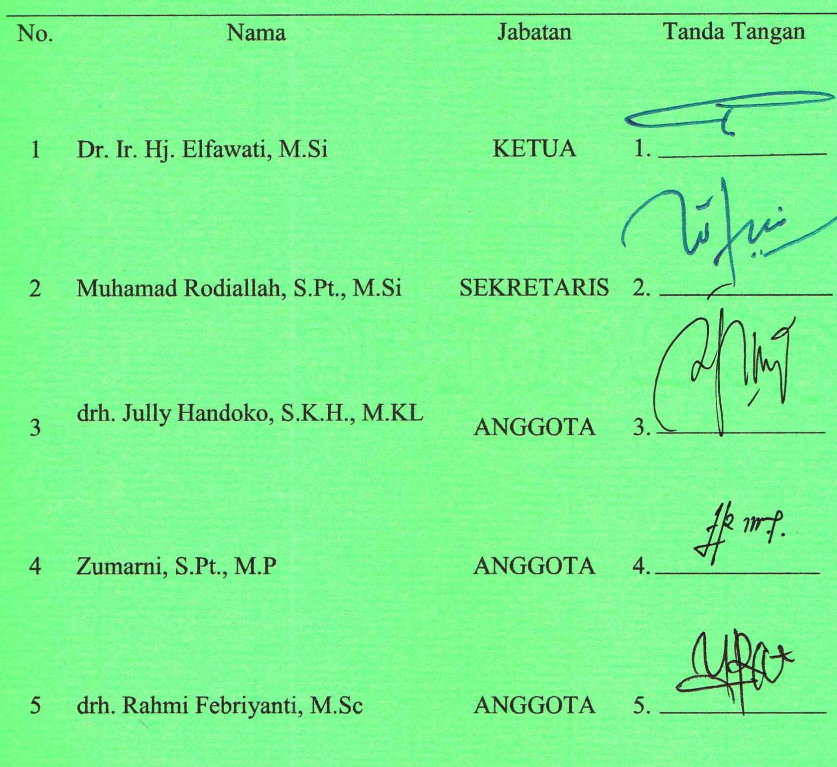 No. Nama Jabatan Tanda Tangan
1 Dr. Ir. Hj. Elfawati, M.Si KETUA 1.
2 Muhamad Rodiallah, S.Pt., M.Si SEKRETARIS 2.
3 drh. Jully Handoko, S.K.H., M.KL ANGGOTA 3.
4 Zumarni, S.Pt., M.P ANGGOTA 4.
5 drh. Rahmi Febriyanti, M.Sc ANGGOTA 5.